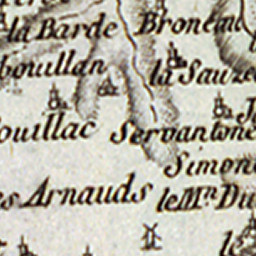 la Barde Broneau
bouillan
la Sauze
ouillac Servantone
Simon
es Arnauds le M.n Du
le